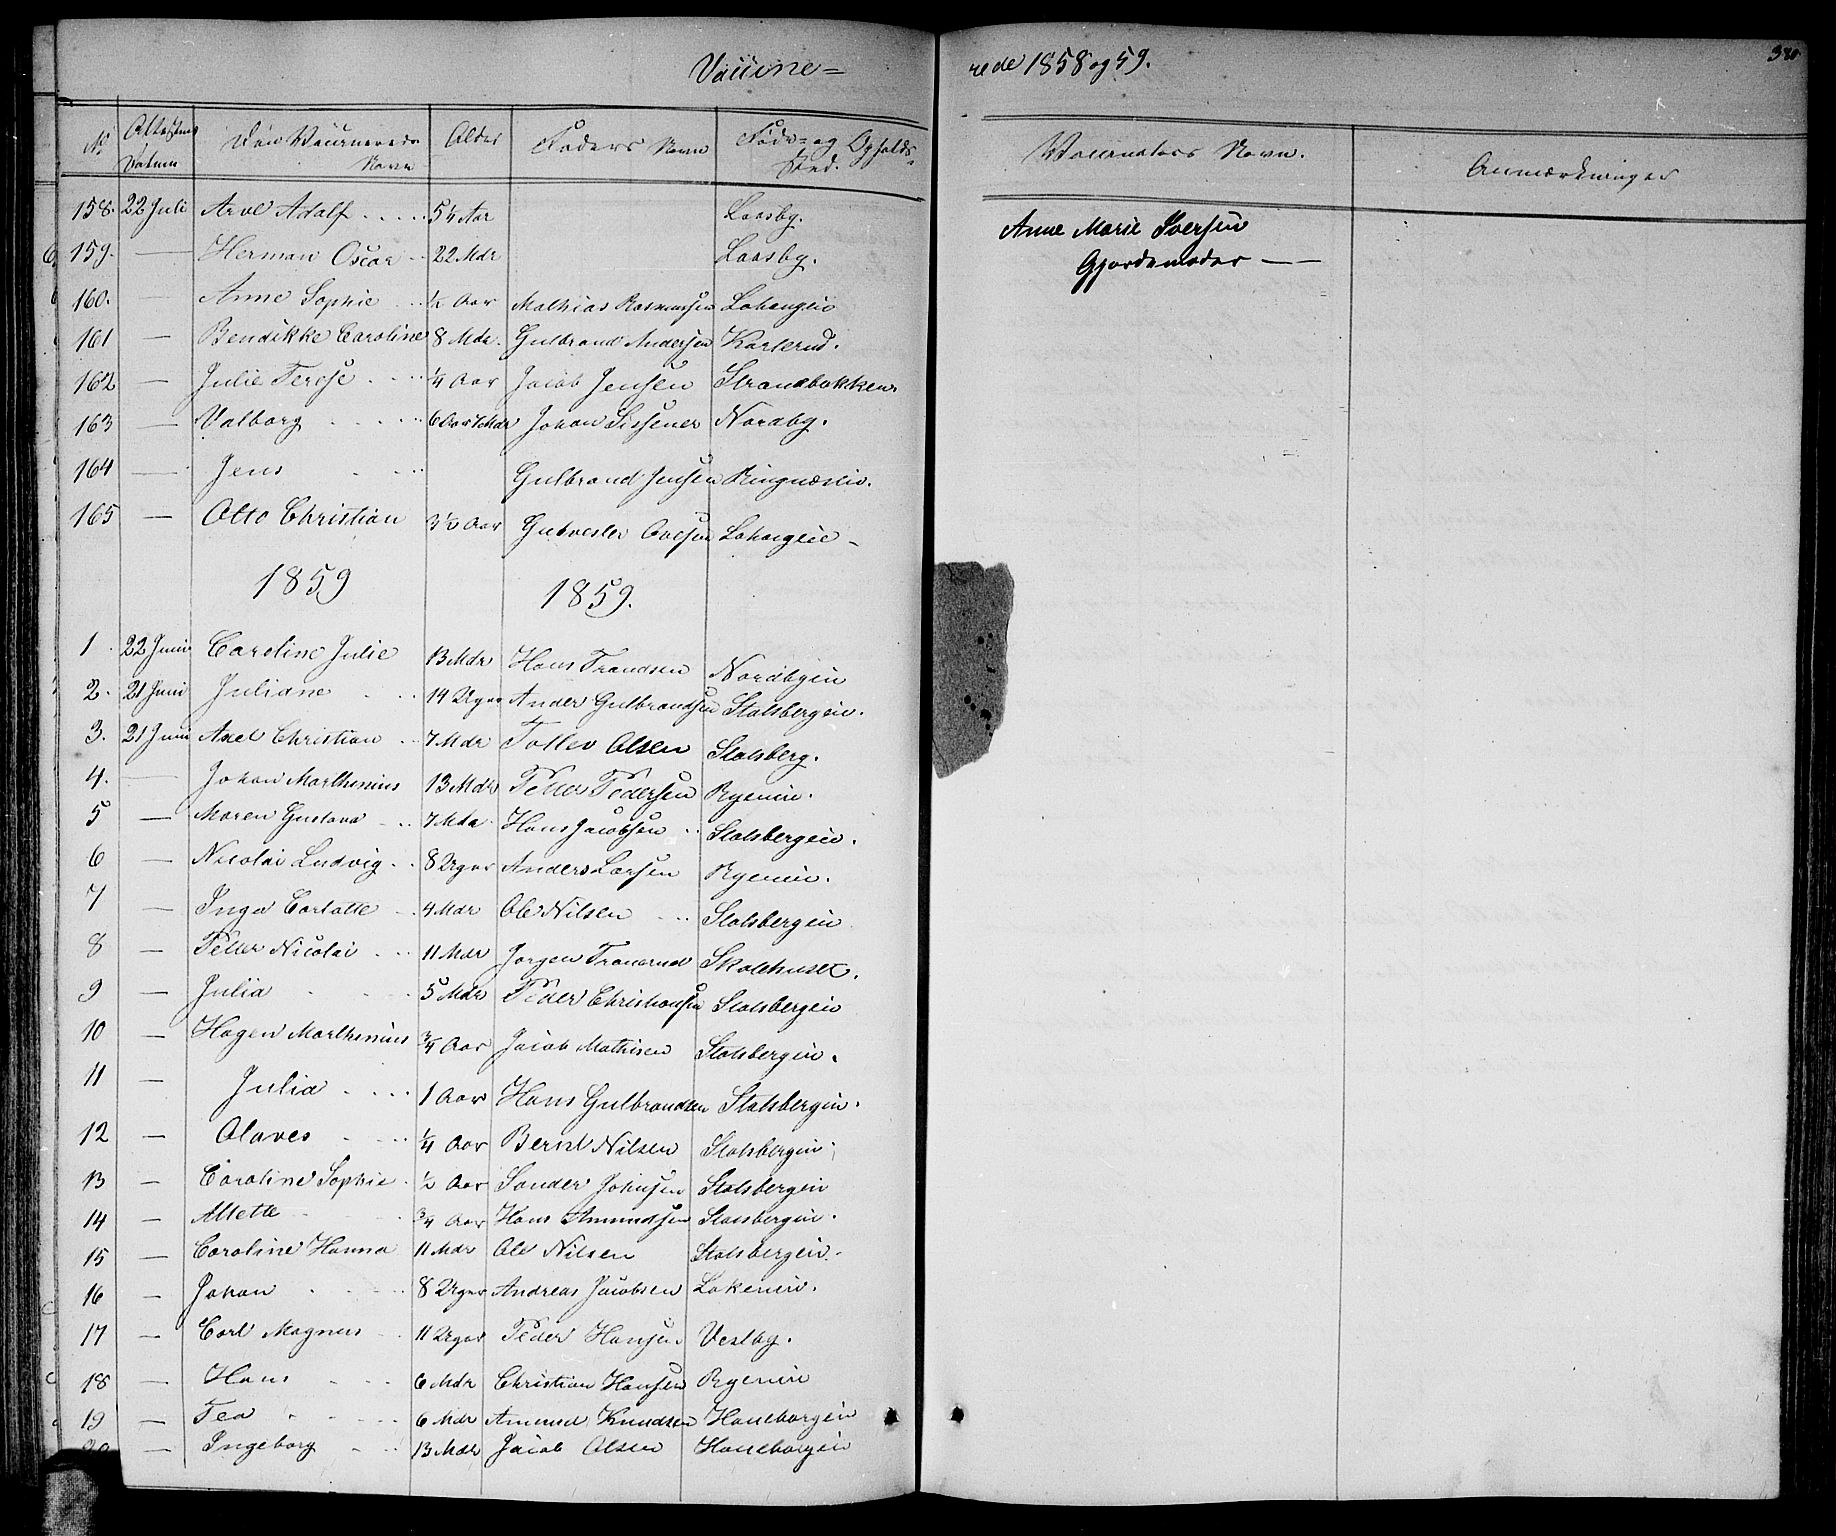 Vaccine=
rede 1858 og 59.
No Attestens Datum Den Vaccineredes Navn Alder Faders Navn Føde= og Opholds= Sted. Vaccinators Navn. Anmærkninger
158. 22 Juli Arve Adolf 5 1/4 Aar Laasby. Anne Marie Iversen
159. — Herman Oscar 22 Mdr Laasby. Gjordemoder —
160. — Anne Sophie 1/2 Aar Mathias Rasmussen
161 — Bendikke Caroline 8 Mdr. Gulbrand Andersen Karlsrud.
162 — Julie Terese 1/4 Aar Jacob Jensen Strandbakken.
163 — Valborg 6 Aar 1 Mdr Johan Nordby.
164 — Jens Gulbrand Jensen
165 — Otto Christian 3 1/2 Aar
1859 1859.
1 22 Juni Caroline Julie 13 Mdr Hans Trandsen Nordbyeie
2. 21 Juni Juliane 14 Uger Ander Gulbrandsen Stolsbergeie.
3. 21 Juni Axel Christian 7 Mdr Tollev Olsen Stolsberg.
4. — Johan Marthinius 13 Mdr Petter Pedersen Ryeneie.
5 — Maren Gustava 7 Mdr. Hans Jacobsen Stolsbergeie.
6 — Nicolai Ludvig 8 Uger Anders Larsen Ryeneie.
7 — Inga Carlotte 4 Mdr Ole Nilsen Stolsbergeie
8 — Petter Nicolai 11 Mdr Jørgen Tranerud Skolehuset.
9 — Julia 5 Mdr Peder Christiansen Stolsbergeie
10 — Hagen Marthinius 3/4 Aar Jacob Mathisen Stolsbergeie.
11 — Julia 1 Aar Hans Gulbrandsen Stolsbergeie.
12 — Olaves 1/4 Aar Bernt Nilsen Stolsbergeie
13 — Caroline Sophie 1/2 Aar Sander Johnsen Stolsbergeie
14 — Allette 3/4 Aar Hans Amundsen Stolsbergeie.
15 — Caroline Hanna 11 Mdr Ole Nilsen Stolsbergeie.
16 — Johan 8 Uger Andreas Jacobsen Lokeneie.
17 — Carl Magnus 11 Uger Peder Hansen Vestby.
18 — Hans 6 Mdr Christian Hansen Ryeneie
19 — Tea 6 Mdr Amund Knudsen Haneborgeie
20 — Ingeborg 13 Mdr Jacob Olsen Haneborgeie